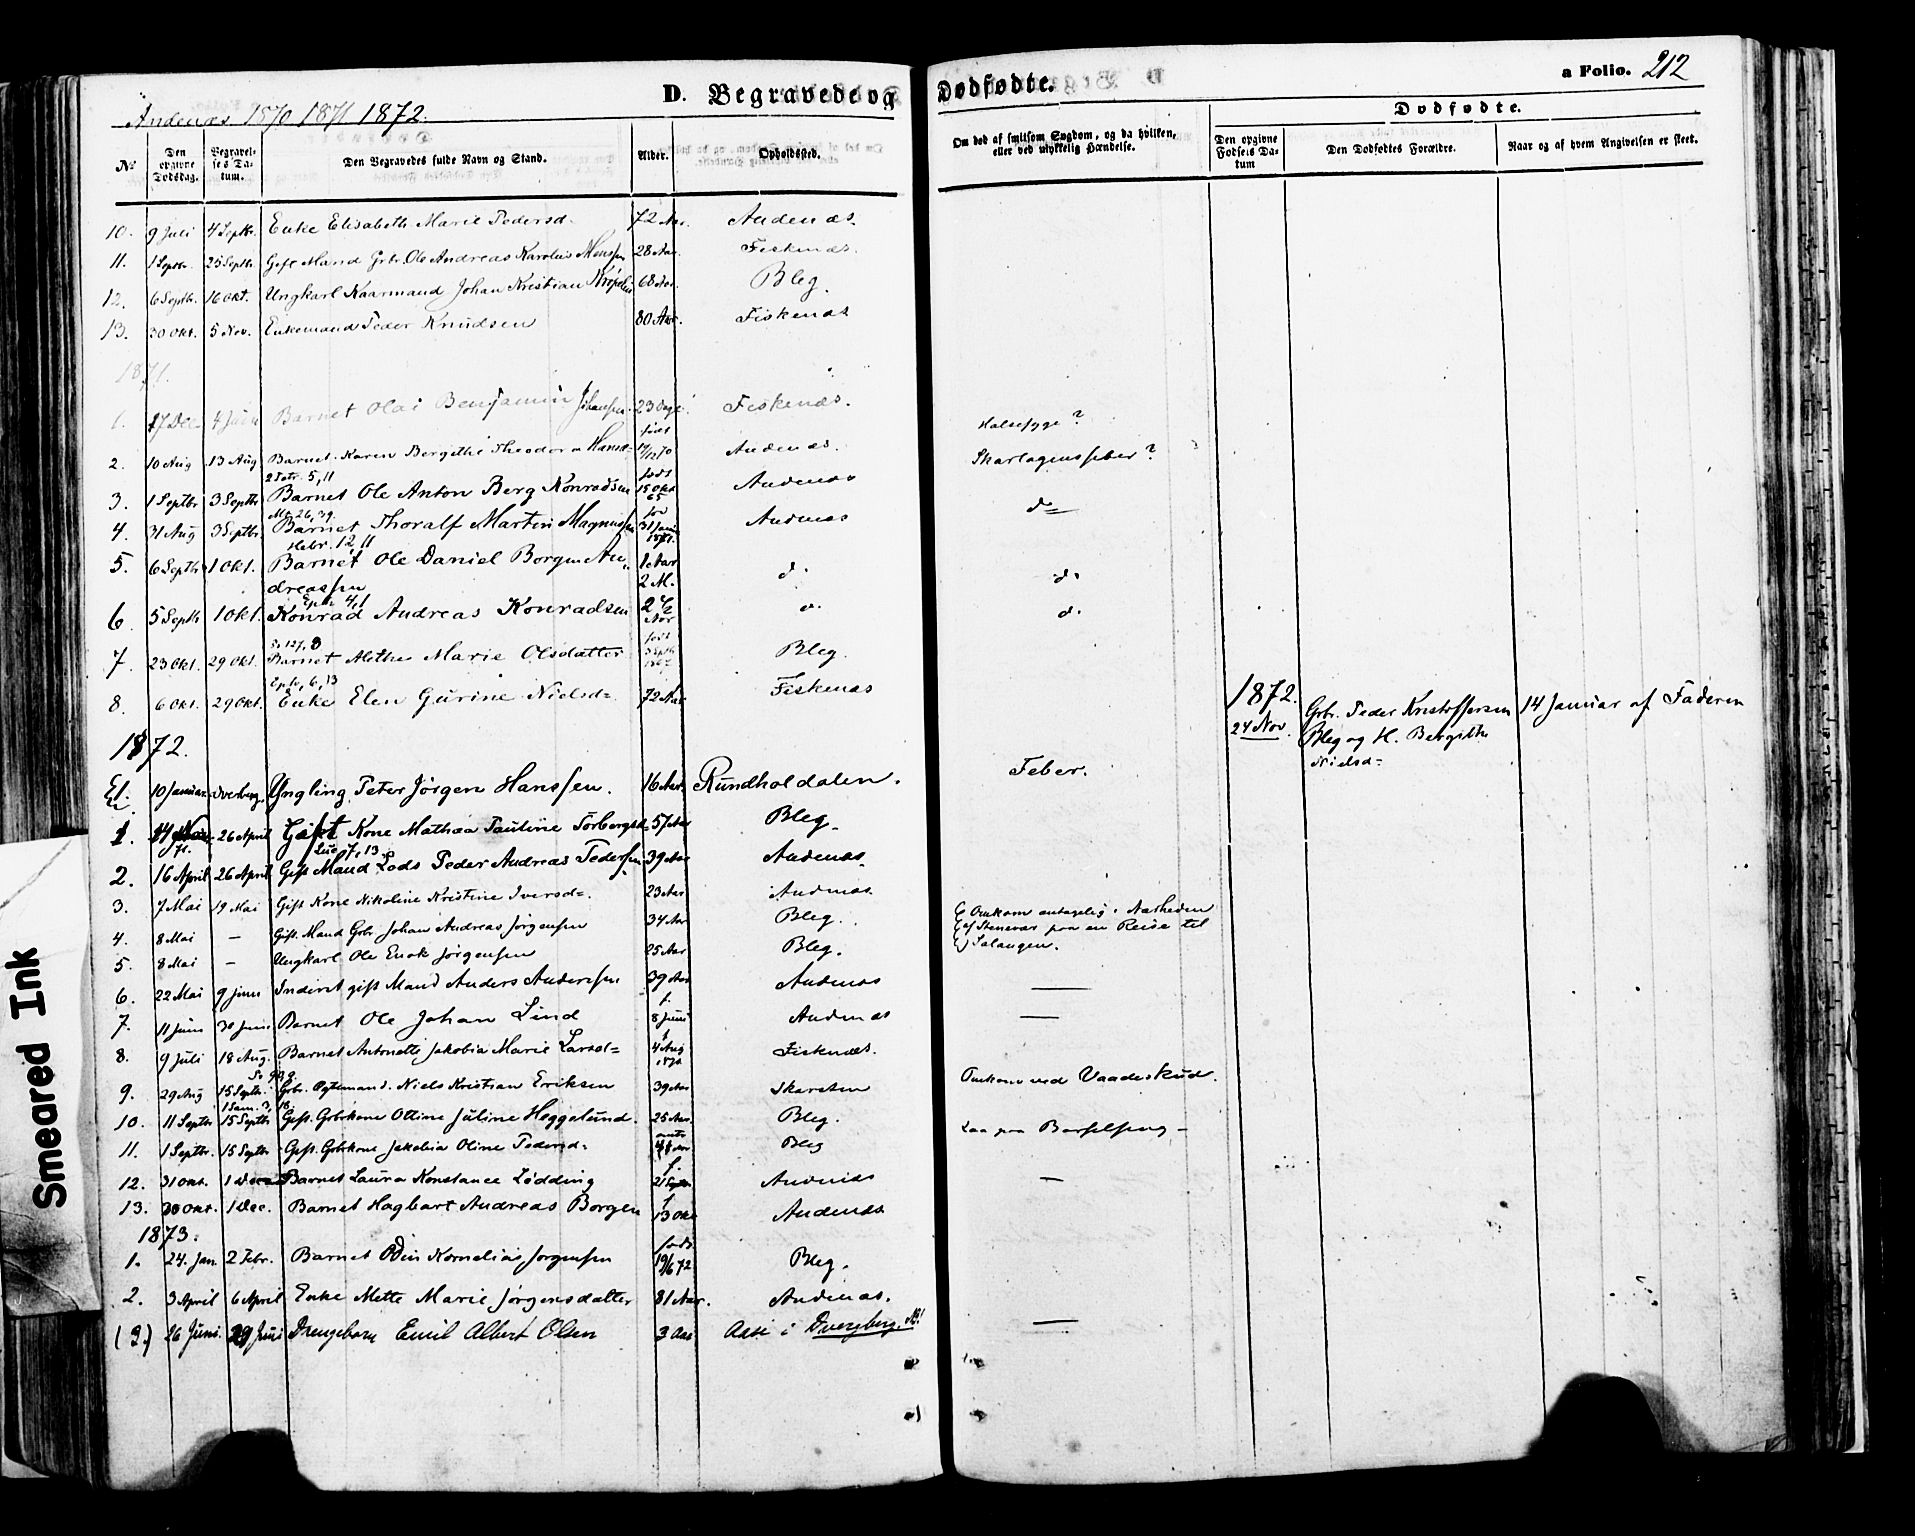 a Folio. 212
D. Begravede og Dødfødte.
Andenæs 1870 1871 1872.
Dødfødte.
No
Den opgivne Dødsdag.
Begravelses Datum.
Den Begravedes fulde Navn og Stand.
Alder.
Opholdssted.
Om død af smitsom Sygdom, og da hvilken, eller ved ulykkelig Hændelse.
Den opgivne Fødsels Datum
Den Dødfødtes Forældre.
Naar og af hvem Angivelsen er skeet.
10. 9 Juli 4 Septbr. Enke Elisabeth Marie Pedersd. 72 Aar. Andenæs.
11. 1 Septbr. 25 Septbr. Gift Mand Grbr. Ole Andreas Karolius Monssen 28 Aar. Fiskenæs.
12. 6 Septbr. 16 Okt. Ungkarl Kaarmand Johan Kristian 68 Aar. Bleg.
13. 30 Okt. 5 Nov. Enkemand Peder Knudsen 80 Aar. Fiskenæs
1871.
1. 17 Dec. 4 Juni Barnet Olai Benjamin Johansen 23 Dage Fiskenæs. Halssyge?
2. 10 Aug 13 Aug Barnet Karen Bergithe Theodora Hansd= født 19/12 70 Andenæs. Skarlagensfeber?
2 Petr. 5, 11
3. 1 Septbr 3 Septbr Barnet Ole Anton Berg Konradsen født 15 Okt 65 Andenæs d=
Mt. 26, 39.
4. 31 Aug 3 Septbr. Barnet Thoralf Martin Magnussen 31 Janu 1871. Andenæs
Hebr. 12, 11
5. 6 Septbr 1 Okt. Barnet Ole Daniel Borgen An-
dreassen 1 Aar 2 M. d. d.
Eph 4, 1
6 5 Septbr 1 Okt. Konrad Andreas Konradsen 2 1/2 Aar d. d.
Ps. 127, 3
7. 23 Okt. 29 Okt. Barnet Alethe Marie Olsdatter født Septb 1867 Bleg.
Eph. 6, 13
8. 6 Okt. 29 Okt. Enke Elen Gurine Nielsd= 72 Aar Fiskenæs
1872.
24 Nov. Grbr. Peder Kristoffersen 14 Januar af Faderen
Bleg og H. Bergithe
Nielsd=
1872.
10 Januar Dverberg. Yngling Peter Jørgen Hanssen. 16 Aar. Rundholdalen. Feber.
1. 14 26 April Gift Kone Mathea Pauline Torbergsd= 57 Aar Bleg.
Luc 7, 13
2. 16 April 26 April Gift Mand Lods Peder Andreas Pedersen 39 Aar Andenæs.
3. 7 Mai 19 Mai Gift Kone Nikoline Kristine Iversd=. 23 Aar Andenæs.
4. 8 Mai — Gift. Mand Grbr. Johan Andreas Jørgensen 34 Aar Bleg. Omkom antagelig i Nærheden
af Stenevær paa en Reise til
5. 8 Mai — Ungkarl Ole Enok Jørgensen 25 Aar Bleg. Salangen.
6. 22 Mai 9 Juni Inderst gift Mand Anders Andersen 39 Aar Andenæs —
7. 11 Juni 30 Juni Barnet Ole Johan Lind f. 8 Juni Andenæs —
8. 9 Juli 18 Aug. Barnet Antonette Jakobia Marie Larsd= f. 4 Aug 1871 Fiskenæs.
9. 29 Aug 15 Septbr. Grbr. Ægtemand. Niels Kristian Eriksen 39 Aar Skarsten Omkom ved Vaadeskud.
1 Sam. 3, 18
10. 11 Septbr 15 Septbr Gift. Gbrkone Ottine Juline Heggelund. 25 Aar. Bleg.
11. 1 Septbr. 15 Septbr Gift. Gbrkone Jakobia Oline Pedersd=. Bleg Laa paa Barselseng —
12. 31 Okt. 1 Barnet Laura Konstance Lødding f. 21 Septbr Andenæs —
13. 30 Okt. 1 Dec. Barnet Hagbart Andreas Borgen f 13 Okt Andenæs
1873.
1. 24. Jan. 2 Febr. Barnet Odin Kornelias Jørgensen født 19/6 72 Bleg.
2. 3 April 6 April Enke Mette Marie Jørgensdatter 81 Aar. Andenæs.
(2.) 26 Juni. 29 Juni Drengebarn Emil Albert Olsen 3 Aar Aase i Dverberg. NB! —
Smeared Ink